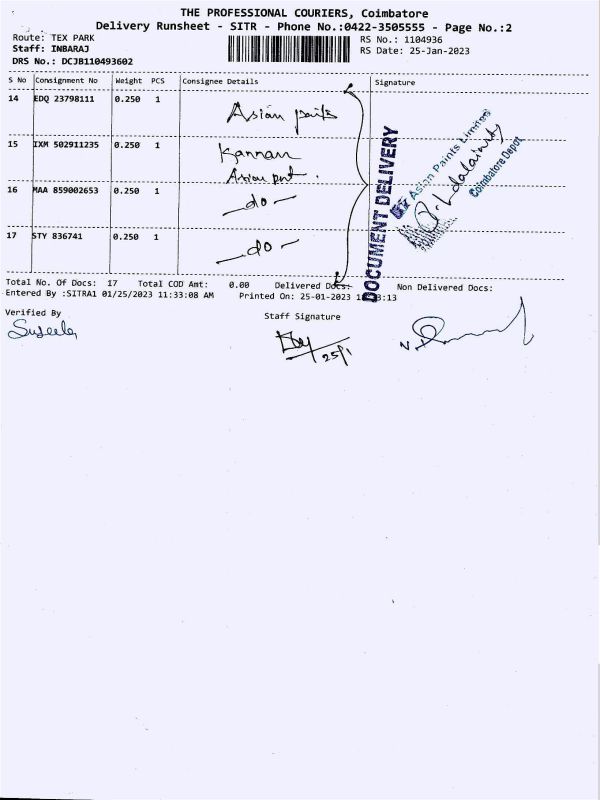 THE PROFESSIONAL COURIERS, Coimbatore
Delivery Runsheet - SITR - Phone No.:0422-3505555 - Page No.:2
Route: TEX PARK
RS No.: 1104936
Staff: INBARAJ
RS Date: 25-Jan-2023
DRS No.: DCJB110493602
S No Consignment No Weight PCS Consignee Details Signature
14 EDQ 23798111 0.250 1 Asian paits
15 IXM 502911235 0.250 1 Kannan
Asian pnt.
16 MAA 859002653 0.250 1 —do—
17 STY 836741 0.250 1 —do—
DOCUMENT DELIVERY
Asian Paints Limited
Coimbatore Depot
Total No. Of Docs: 17 Total COD Amt: 0.00 Delivered Docs: Non Delivered Docs:
Entered By :SITRA1 01/25/2023 11:33:08 AM Printed On: 25-01-2023 :13
Verified By
Staff Signature
Suseela
25/1